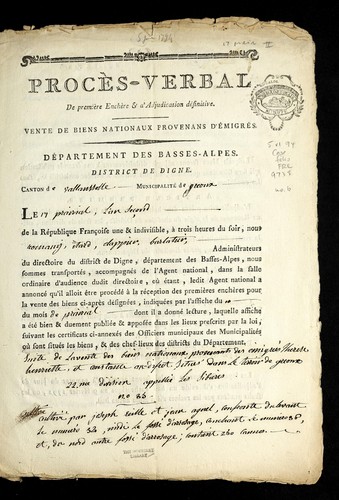 PROCÈS-VERBAL
De première Enchère & d'Adjudication définitive.
VENTE DE BIENS NATIONAUX PROVENANS D'ÉMIGRÉS.
DÉPARTEMENT DES BASSES-ALPES.
DISTRICT DE DIGNE.
CANTON de MUNICIPALITÉ de greoux
LE 17 prairial, l'an second
de la République Françoise une & indivisible, à trois heures du soir, nous
Administrateurs
du directoire du district de Digne, département des Basses-Alpes, nous
sommes transportés, accompagnés de l'Agent national, dans la salle
ordinaire d'audience dudit directoire, où étant, ledit Agent national a
annoncé qu'il alloit être procédé à la réception des premières enchères pour
la vente des biens ci-après désignées, indiquées par l'affiche du
du mois de prairial dont il a donné lecture, laquelle affiche
a été bien & duement publiée & apposée dans les lieux prescrits par la loi,
suivant les certificats ci-annexés des Officiers municipaux des Municipalités
où sont situés les biens, & des chef-lieux des districts du Département.
Suite de la vente des biens nationaux provenant des émigrés
henriette, et constance situés dans le terroir de greoux
22me division appellée Les
no. 35.
cultivé par joseph et jean confronte du levant
le numéro 34, midi le fossé d'arrosage, couchant le numéro 38,
et, du nord autre fossé d'arrosage, contenant 240 cannes.